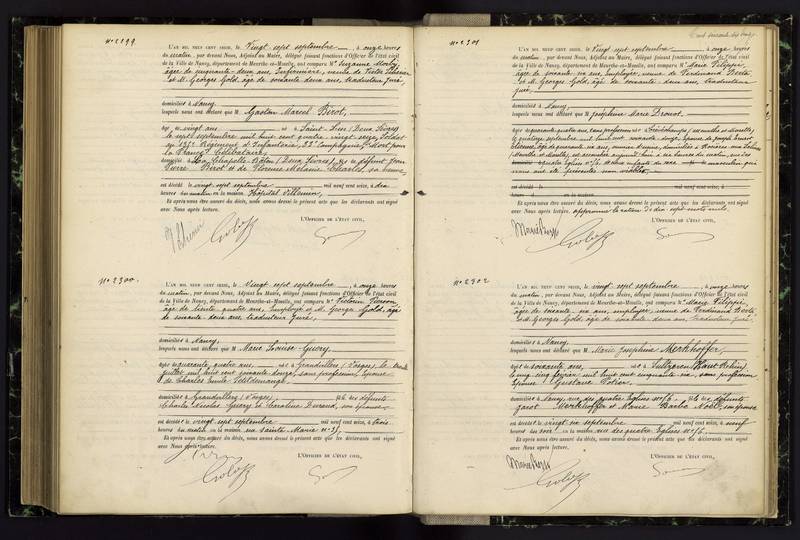 N° 2299
L'AN MIL NEUF CENT SEIZE, le Vingt sept septembre, à onze heures
du matin, par devant Nous, Adjoint au Maire, délégué faisant fonctions d'Officier de l'état civil
de la Ville de Nancy, département de Meurthe-et-Moselle, ont comparu M Suzanne
âgée de cinquante deux ans, Infirmière, veuve de Victor
et M. Georges Gold, âgé de soixante deux ans, traducteur juré,
domicilié à Nancy,
lesquels nous ont déclaré que M Gaston Marcel Birot,
âgé de vingt ans né à Saint (Deux Sèvres)
le sept septembre mil huit cent quatre vingt seize, Soldat
au 135e Régiment d'Infanterie, Compagnie, Mort pour
la France, Célibataire,
domicilié à La Chapelle Bâton (Deux Sèvres), fils de défunt
Pierre Birot et de Florence Mélanie Charles, sa femme
est décédé le vingt sept septembre mil neuf cent seize, à dix
heures du matin en la maison Hôpital Villemin,
Et après nous être assuré du décès, nous avons dressé le présent acte que les déclarants ont signé
avec Nous après lecture.
L'OFFICIER DE L'ÉTAT CIVIL,
N° 2300
L'AN MIL NEUF CENT SEIZE, le Vingt sept septembre, à onze heures
du matin, par devant Nous, Adjoint au Maire, délégué faisant fonctions d'Officier de l'état civil
de la Ville de Nancy, département de Meurthe-et-Moselle, ont comparu M Victorin Pierson,
âgé de trente quatre ans, Employé et M. Georges Gold, âgé
de soixante deux ans, traducteur juré,
domicilié à Nancy,
lesquels nous ont déclaré que M Marie Louise Guery,
âgée de quarante quatre ans, née à Grandvillers (Vosges), le
juillet mil huit cent soixante douze, sans profession, épouse
de Charles Emile
domiciliée à Grandvillers (Vosges), fille des défunts
Charles Nicolas Guery et Caroline Durand, son épouse
est décédée le vingt sept septembre mil neuf cent seize, à trois
heures du matin en la maison rue Sainte Marie n° 31,
Et après nous être assuré du décès, nous avons dressé le présent acte que les déclarants ont signé
avec Nous après lecture.
L'OFFICIER DE L'ÉTAT CIVIL,
N° 2301
L'AN MIL NEUF CENT SEIZE, le Vingt sept septembre, à onze heures
du matin, par devant Nous, Adjoint au Maire, délégué faisant fonctions d'Officier de l'état civil
de la Ville de Nancy, département de Meurthe-et-Moselle, ont comparu M Marie Filippi,
âgée de soixante un ans, employée, veuve de Ferdinand
et M. Georges Gold, âgé de soixante deux ans, traducteur
juré,
domicilié à Nancy,
lesquels nous ont déclaré que M Joséphine Marie Drouot,
âgée de quarante quatre ans, sans profession née à (Meurthe et Moselle),
le septembre mil huit cent soixante douze, épouse de Joseph
âgé de quarante un ans, domiciliés à Rosières aux Salines
(Meurthe et Moselle), est accouchée heures du matin, rue des
quatre Eglises n° 16 d'un enfant du sexe masculin qui
nous a été présenté sans vie.
est décédé le mil neuf cent seize, à
heures du en la maison
Et après nous être assuré du décès, nous avons dressé le présent acte que les déclarants ont signé
avec Nous après lecture. approuvé la rature de dix sept mots nuls.
L'OFFICIER DE L'ÉTAT CIVIL,
N° 2302
L'AN MIL NEUF CENT SEIZE, le vingt sept septembre, à onze heures
du matin, par devant Nous, Adjoint au Maire, délégué faisant fonctions d'Officier de l'état civil
de la Ville de Nancy, département de Meurthe-et-Moselle, ont comparu M Marie Filippi,
âgée de soixante un ans, employée, veuve de Ferdinand
et M. Georges Gold, âgé de soixante deux ans, traducteur juré,
domicilié à Nancy,
lesquels nous ont déclaré que M Marie Joséphine Merkhoffer,
âgée de soixante ans, née à Sultzeren (Haut Rhin),
le cinq février mil huit cent cinquante six, sans profession
épouse Gustave
domiciliée à Nancy, rue des quatre Eglises n° 16, fille des défunts
Merkhoffer et Marie Barbe Noël, son épouse
est décédée le vingt six septembre mil neuf cent seize, à neuf
heures du soir en la maison rue des quatre Eglises n° 16,
Et après nous être assuré du décès, nous avons dressé le présent acte que les déclarants ont signé
avec Nous après lecture.
L'OFFICIER DE L'ÉTAT CIVIL,